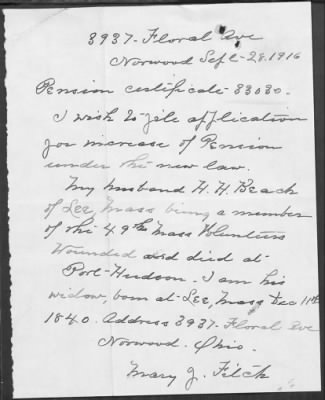 3937 - Floral Ave
Norwood Sept - 28. 1916
Pension certificate - 33030.
I wish to file application
for increase of Pension
under the new law.
My husband H. H. Beach
of Lee, Mass being a member
of the 49th Mass Volunteers
Wounded and died at
Port - Hudson. I am his
widow, born at Lee, Mass Dec 11th
1840. Address 3937 - Floral Ave
Norwood. Ohio.
Mary J. Fitch